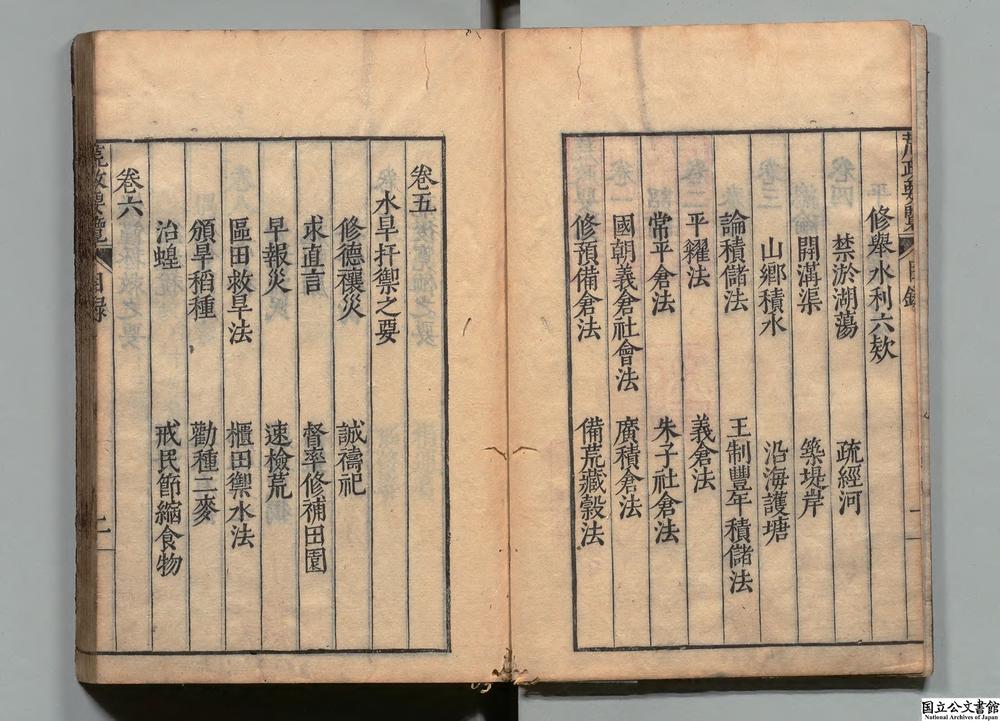 荒政要覽 目錄 二
修舉水利六欵 疏經河
禁淤湖蕩 築堤岸
開溝渠 沿海護塘
山鄉積水
論積儲法 王制豐年積儲法
平糴法 義倉法
常平倉法 朱子社倉法
國朝義倉社會法 廣積倉法
修預備倉法 備荒藏穀法
卷五
水旱扞禦之要
修德禳災 誠禱祀
求直言 督率修補田圍
早報災 速檢荒
區田救旱法 櫃田禦水法
頒旱稻種 勸種二麥
治蝗 戒民節縮食物
卷六
荒政要覽 目錄 二
国立公文書館
National Archives of Japan